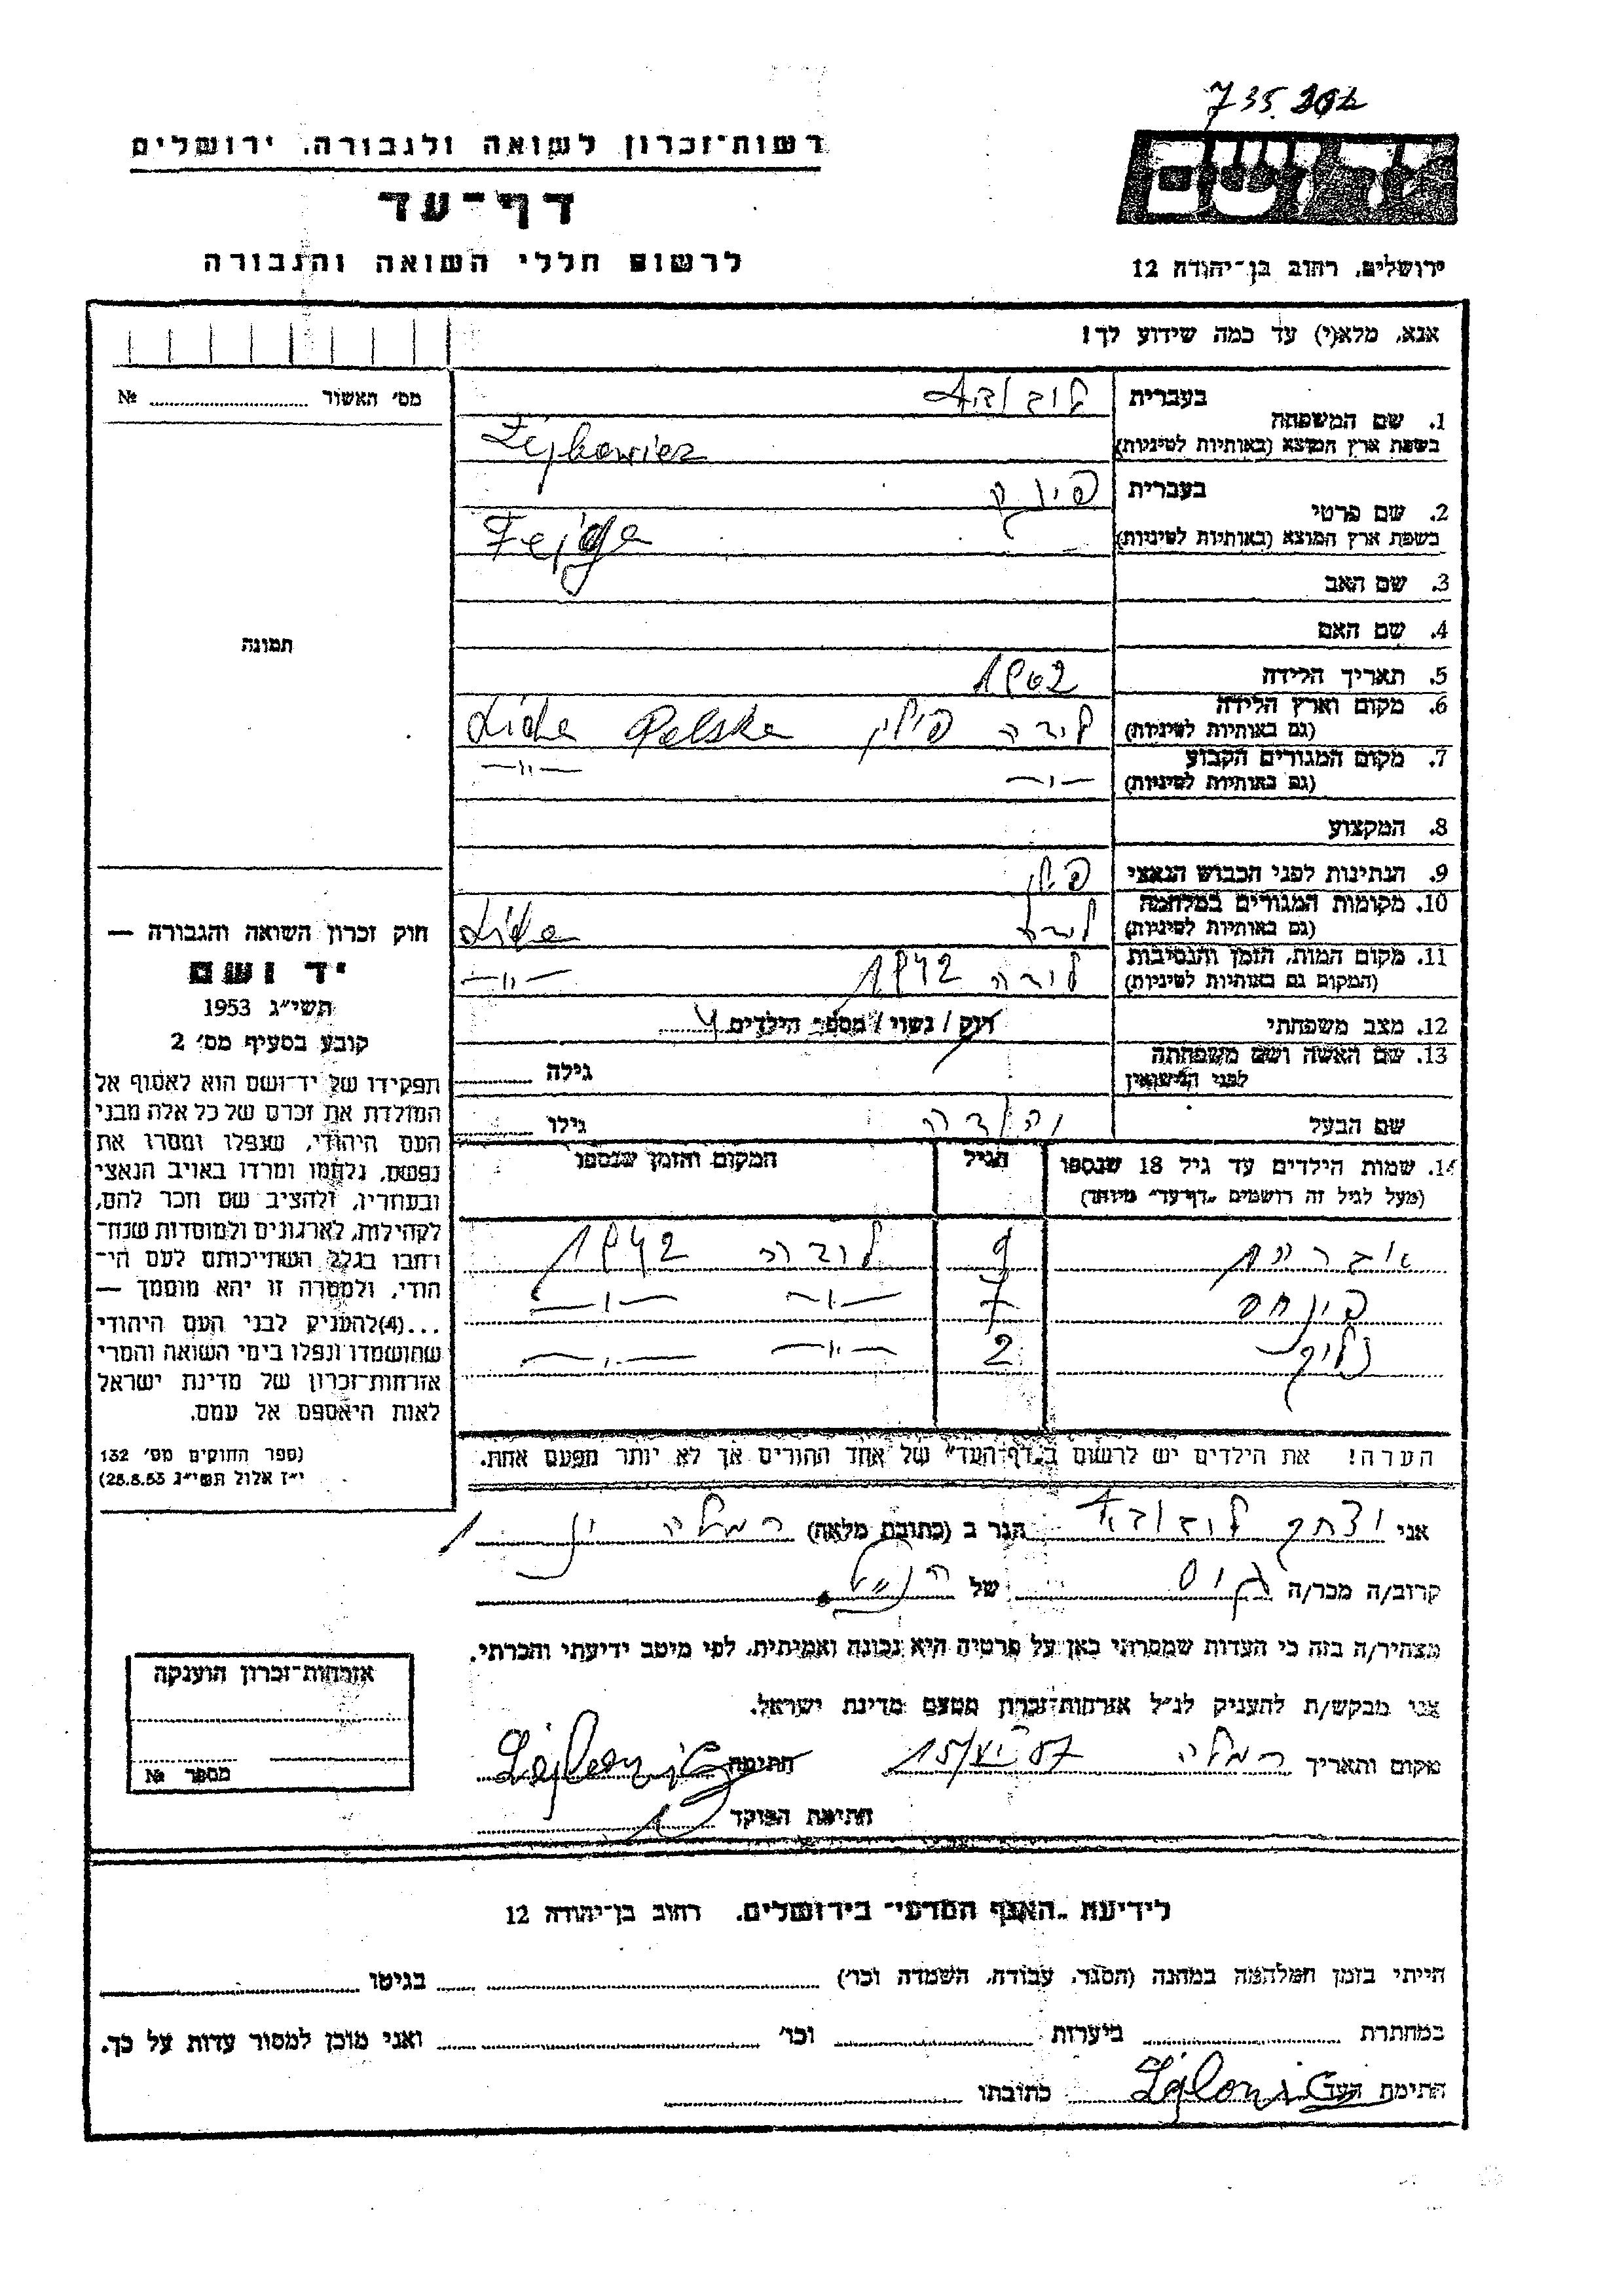 735.202
רשות־זכרון לשואה ולגבורה, ירושלים
יד ושם
דף־עד
לרשום חללי השואה והגבורה
ירושלים, רחוב בן־יהודה 12
אנא, מלא(י) עד כמה שידוע לך!
מס׳ האשור № 
1. שם המשפחה
בעברית
בשפת ארץ המוצא (באותיות לטיניות) Lejkowicz
2. שם פרטי
בעברית פייגה
בשפת ארץ המוצא (באותיות לטיניות) Fejga
3. שם האב
4. שם האם
תמונה
5. תאריך הלידה 1902
6. מקום וארץ הלידה (גם באותיות לטיניות) לידה פולין Lida Polska
7. מקום המגורים הקבוע (גם באותיות לטיניות) —„— —„—
8. המקצוע
9. הנתינות לפני הכבוש הנאצי פולין
10. מקומות המגורים במלחמה (גם באותיות לטיניות) לידה Lida
11. מקום המות, הזמן והנסיבות (המקום גם באותיות לטיניות) לידה 1942 —„—
12. מצב משפחתי רווק / נשוי / מספר הילדים 4
13. שם האשה ושם משפחתה לפני הנישואין גילה
שם הבעל יהודה גילו
14. שמות הילדים עד גיל 18 שנספו הגיל המקום והזמן שנספו
(מעל לגיל זה רושמים „דף־עד״ מיוחד)
9 לידה 1942
פינחס 7 —„— —„—
2 —„— —„—
הערה! את הילדים יש לרשום ב„דף העד״ של אחד ההורים אך לא יותר מפעם אחת.
חוק זכרון השואה והגבורה —
יד ושם
תשי״ג 1953
קובע בסעיף מס׳ 2
תפקידו של יד־ושם הוא לאסוף אל
המולדת את זכרם של כל אלה מבני
העם היהודי, שנפלו ומסרו את
נפשם, נלחמו ומרדו באויב הנאצי
ובעוזריו, ולהציב שם וזכר להם,
לקהילות, לארגונים ולמוסדות שנח־
רבו בגלל השתייכותם לעם הי־
הודי, ולמטרה זו יהא מוסמך —
...(4) להעניק לבני העם היהודי
שהושמדו ונפלו בימי השואה והמרי
אזרחות־זכרון של מדינת ישראל
לאות היאספם אל עמם.
(ספר החוקים מס׳ 132
י״ז אלול תשי״ג 28.8.53)
אני יצחק הגר ב (כתובת מלאה) רמלה
קרוב/ה מכר/ה גיס של הנ״ל
מצהיר/ה בזה כי העדות שמסרתי כאן על פרטיה היא נכונה ואמיתית, לפי מיטב ידיעתי והכרתי.
אני מבקש/ת להעניק לנ״ל אזרחות־זכרון מטעם מדינת ישראל.
מקום ותאריך רמלה 15/VI 57 חתימה Lejkowicz
חתימת הפוקד
אזרחות־זכרון הוענקה
מספר №
לידיעת „האגף המדעי״ בירושלים, רחוב בן־יהודה 12
הייתי בזמן המלחמה במחנה (הסגר, עבודה, השמדה וכו׳) בגיטו
במחתרת ביערות וכו׳ ואני מוכן למסור עדות על כך.
חתימת העד Lejkowicz כתובתו